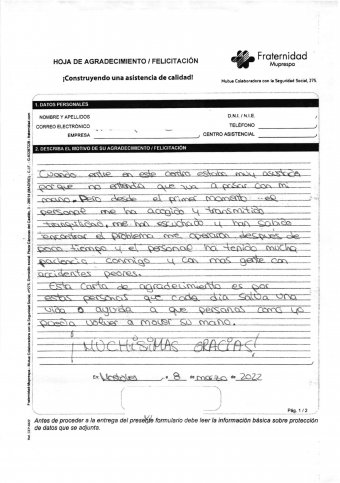 HOJA DE AGRADECIMIENTO / FELICITACIÓN
¡Construyendo una asistencia de calidad!
Fraternidad
Muprespa
Mutua Colaboradora con la Seguridad Social, 275.
1. DATOS PERSONALES
NOMBRE Y APELLIDOS D.N.I. / N.I.E.
CORREO ELECTRÓNICO TELÉFONO
EMPRESA CENTRO ASISTENCIAL
2. DESCRIBA EL MOTIVO DE SU AGRADECIMIENTO / FELICITACIÓN
Cuando entre en este centro estaba muy asustada
porque no entendia que iva a pasar con mi
mano. Pero desde el primer momento el
personal me ha acogido y transmitido
tranquilidad, me han escuchado y han sabido
encontrar el problema me operaron después de
poco tiempo y el personal ha tenido mucha
paciencia conmigo y con mas gente con
accidentes peores.
Esta Carta de agradecimiento es por
estas personas que cada dia salva una
vida o ayuda a que personas como yo
pueda volver a mover su mano.
¡MUCHÍSIMAS GRACIAS!
En Móstoles, 8 de marzo de 2022
Pág. 1 / 2
Antes de proceder a la entrega del presente formulario debe leer la información básica sobre protección
de datos que se adjunta.